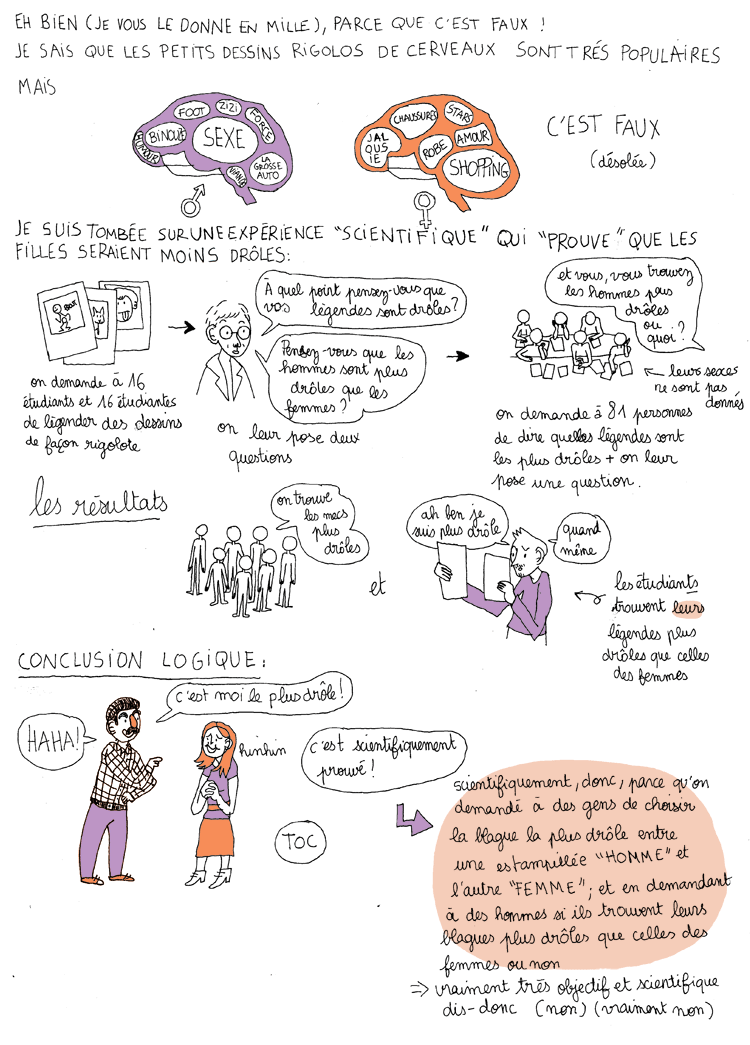 EH BIEN (JE VOUS LE DONNE EN MILLE), PARCE QUE C'EST FAUX !
JE SAIS QUE LES PETITS DESSINS RIGOLOS DE CERVEAUX SONT TRÉS POPULAIRES
MAIS
FOOT
ZIZI
FORCE
BINOUZE
SEXE
HUMOUR
VIANDE
LA
GROSSE
AUTO
CHAUSSURES
STARS
JAL
OUS
IE
ROBE
AMOUR
SHOPPING
C'EST FAUX
(désolée)
JE SUIS TOMBÉE SUR UNE EXPÉRIENCE "SCIENTIFIQUE" QUI "PROUVE" QUE LES
FILLES SERAIENT MOINS DRÔLES:
BOX
on demande à 16
étudiants et 16 étudiantes
de légender des dessins
de façon rigolote
À quel point pensez-vous que
vos légendes sont drôles ?
Pensez-vous que les
hommes sont plus
drôles que les
femmes ?
on leur pose deux
questions
et vous, vous trouvez
les hommes plus
drôles
ou
quoi ?
leurs sexes
ne sont pas
donnés
on demande à 81 personnes
de dire quelles légendes sont
les plus drôles + on leur
pose une question.
les résultats
on trouve
les mecs
plus
drôles
et
ah ben je
suis plus drôle
quand
même
les étudiants
trouvent leurs
légendes plus
drôles que celles
des femmes
CONCLUSION LOGIQUE :
HAHA!
c'est moi le plus drôle !
hinhin
c'est scientifiquement
prouvé !
TOC
scientifiquement, donc, parce qu'on
demandé à des gens de choisir
la blague la plus drôle entre
une estampillée "HOMME" et
l'autre "FEMME"; et en demandant
à des hommes si ils trouvent leurs
blagues plus drôles que celles des
femmes ou non
⇒ vraiment très objectif et scientifique
dis-donc (non) (vraiment non)